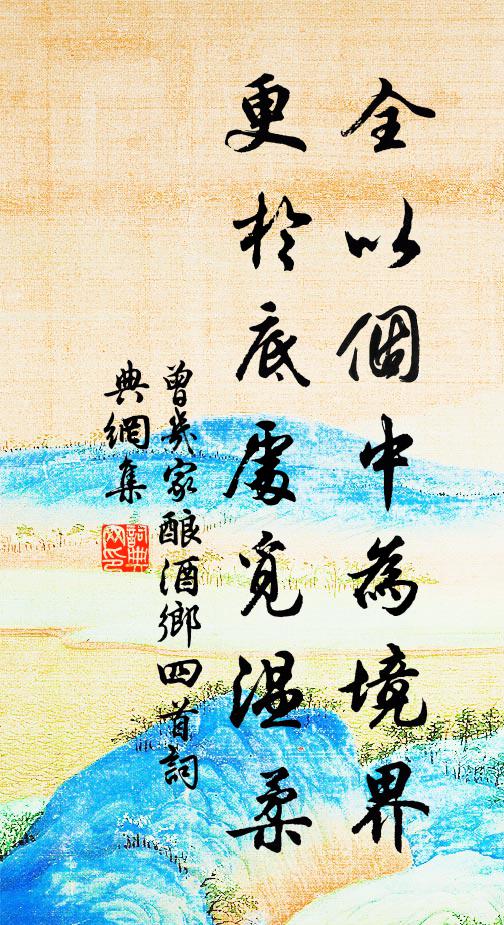 全以個中為境界
更於底處覓溫柔
曾幾家酿酒鄉四首詞
典網集
詞典